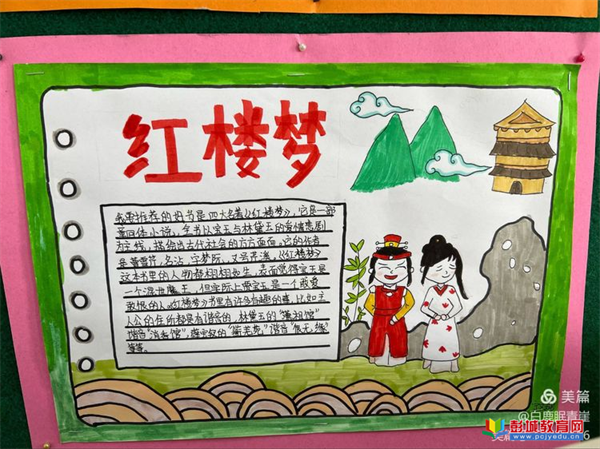 红楼梦
我要推荐的书是四大名著《红楼梦》,它是一部
章回体小说,全书以宝玉与林黛玉的爱情悲剧
为主线,描绘出古代社会的方方面面,它的作者
是曹雪芹,名沾,字梦阮,又号芹溪,《红楼梦》
这本书里的人物都栩栩如生,表面觉得宝玉是
一个混世魔王,但实际上贾宝玉是一个敢爱
敢恨的人《红楼梦》书里有许多有趣的事,比如主
人公的住所都是有谐音的,林黛玉的"潇湘馆"
谐音"消香馆",薛宝钗的"蘅芜苑"谐音"恨无缘"
等等。
美篇
@白鹿眠青崖
彭城教育网
www.pcjyedu.cn
6